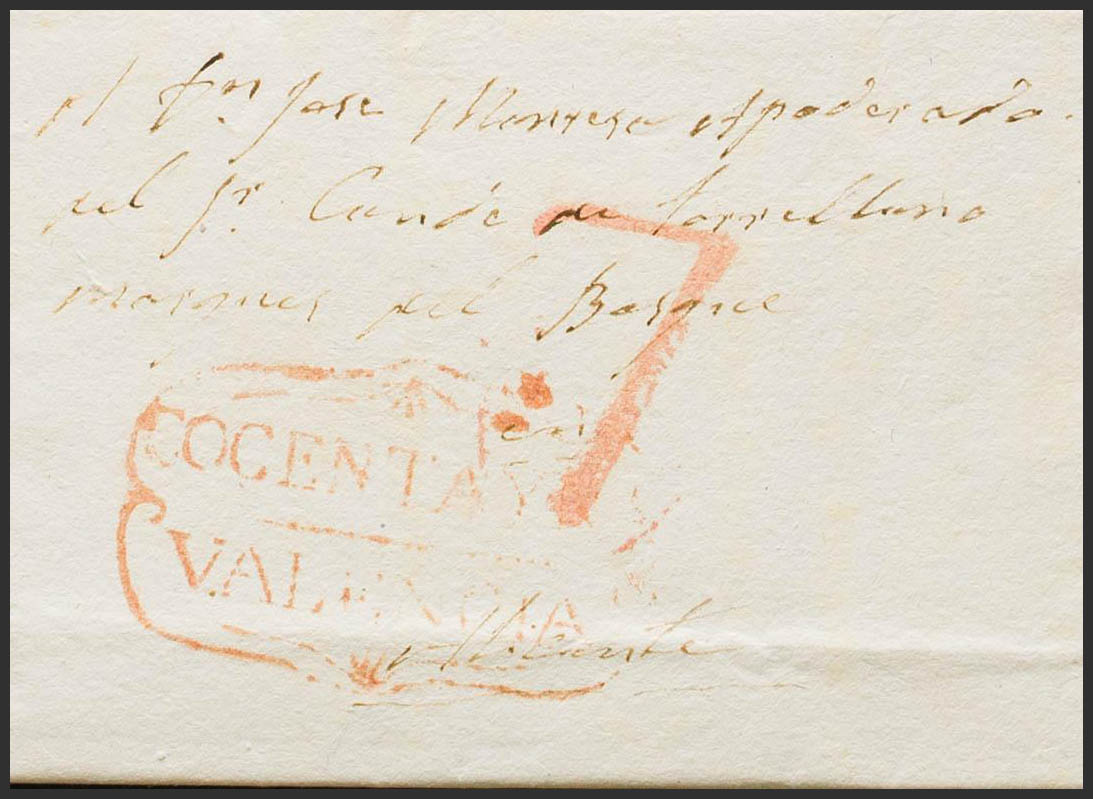 A Dn Jose Montesa Apoderado.
del Sr. Conde de torrellano
marques del Bosque
7
en
COCENTAY
VALENCIA
Alicante